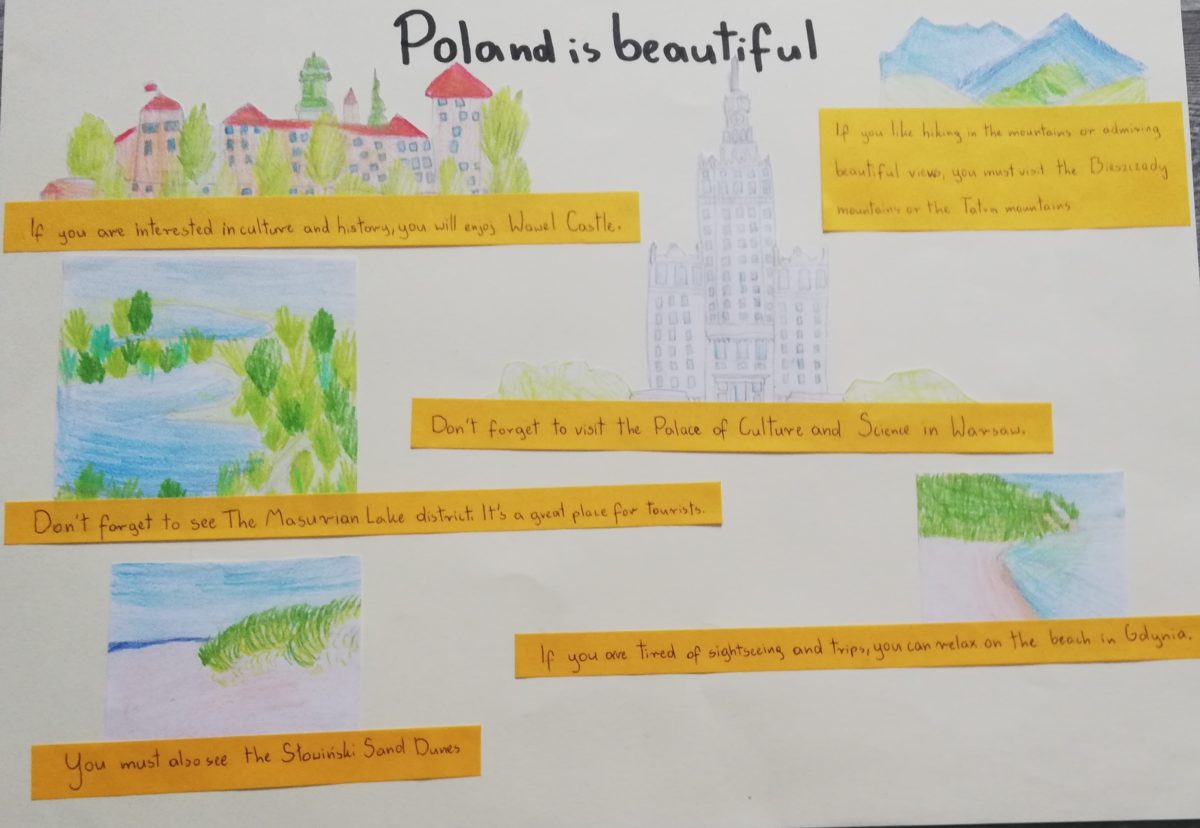 Poland is beautiful
If you like hiking in the mountains or admiring
beautiful views, you must visit the Bieszczady
mountains or the Tatra mountains
If you are interested in culture and history, you will enjoy Wawel Castle.
Don't forget to visit the Palace of Culture and Science in Warsaw.
Don't forget to see The Masurian Lake district. It's a great place for tourists.
If you are tired of sightseeing and trips, you can relax on the beach in Gdynia.
You must also see the Słowiński Sand Dunes